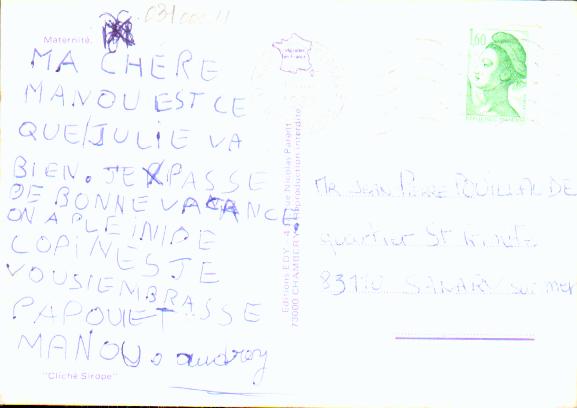 031000 11
Maternité.
MA CHERE
MANOU EST CE
QUE/JULIE VA
BIEN. JE PASSE
DE BONNE VACANCE.
ON A PLEINI DE
COPINES JE
VOUSIEMBRASSE
PAPOU ET
MANOU. audrey
"Cliché Sirope"
Editions EDY - 4, rue Nicolas Parent
73000 CHAMBERY Reproduction interdite
1,60
MR JEAN PIERRE
quartier St
83110 SANARY sur mer